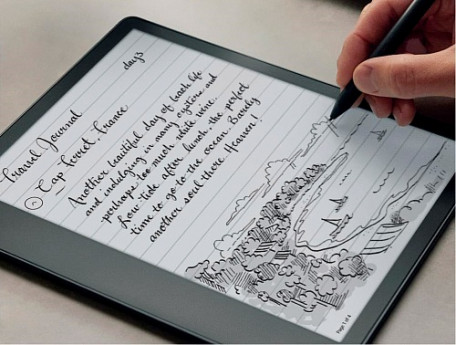 Travel Journal
days
Cap Ferret, France
Another beautiful day of beach life
and indulging in many oysters and
perhaps too much white wine.
Low tide after lunch, the perfect
time to go to the ocean. Barely
another soul there. Heaven!
Page 1 of 6